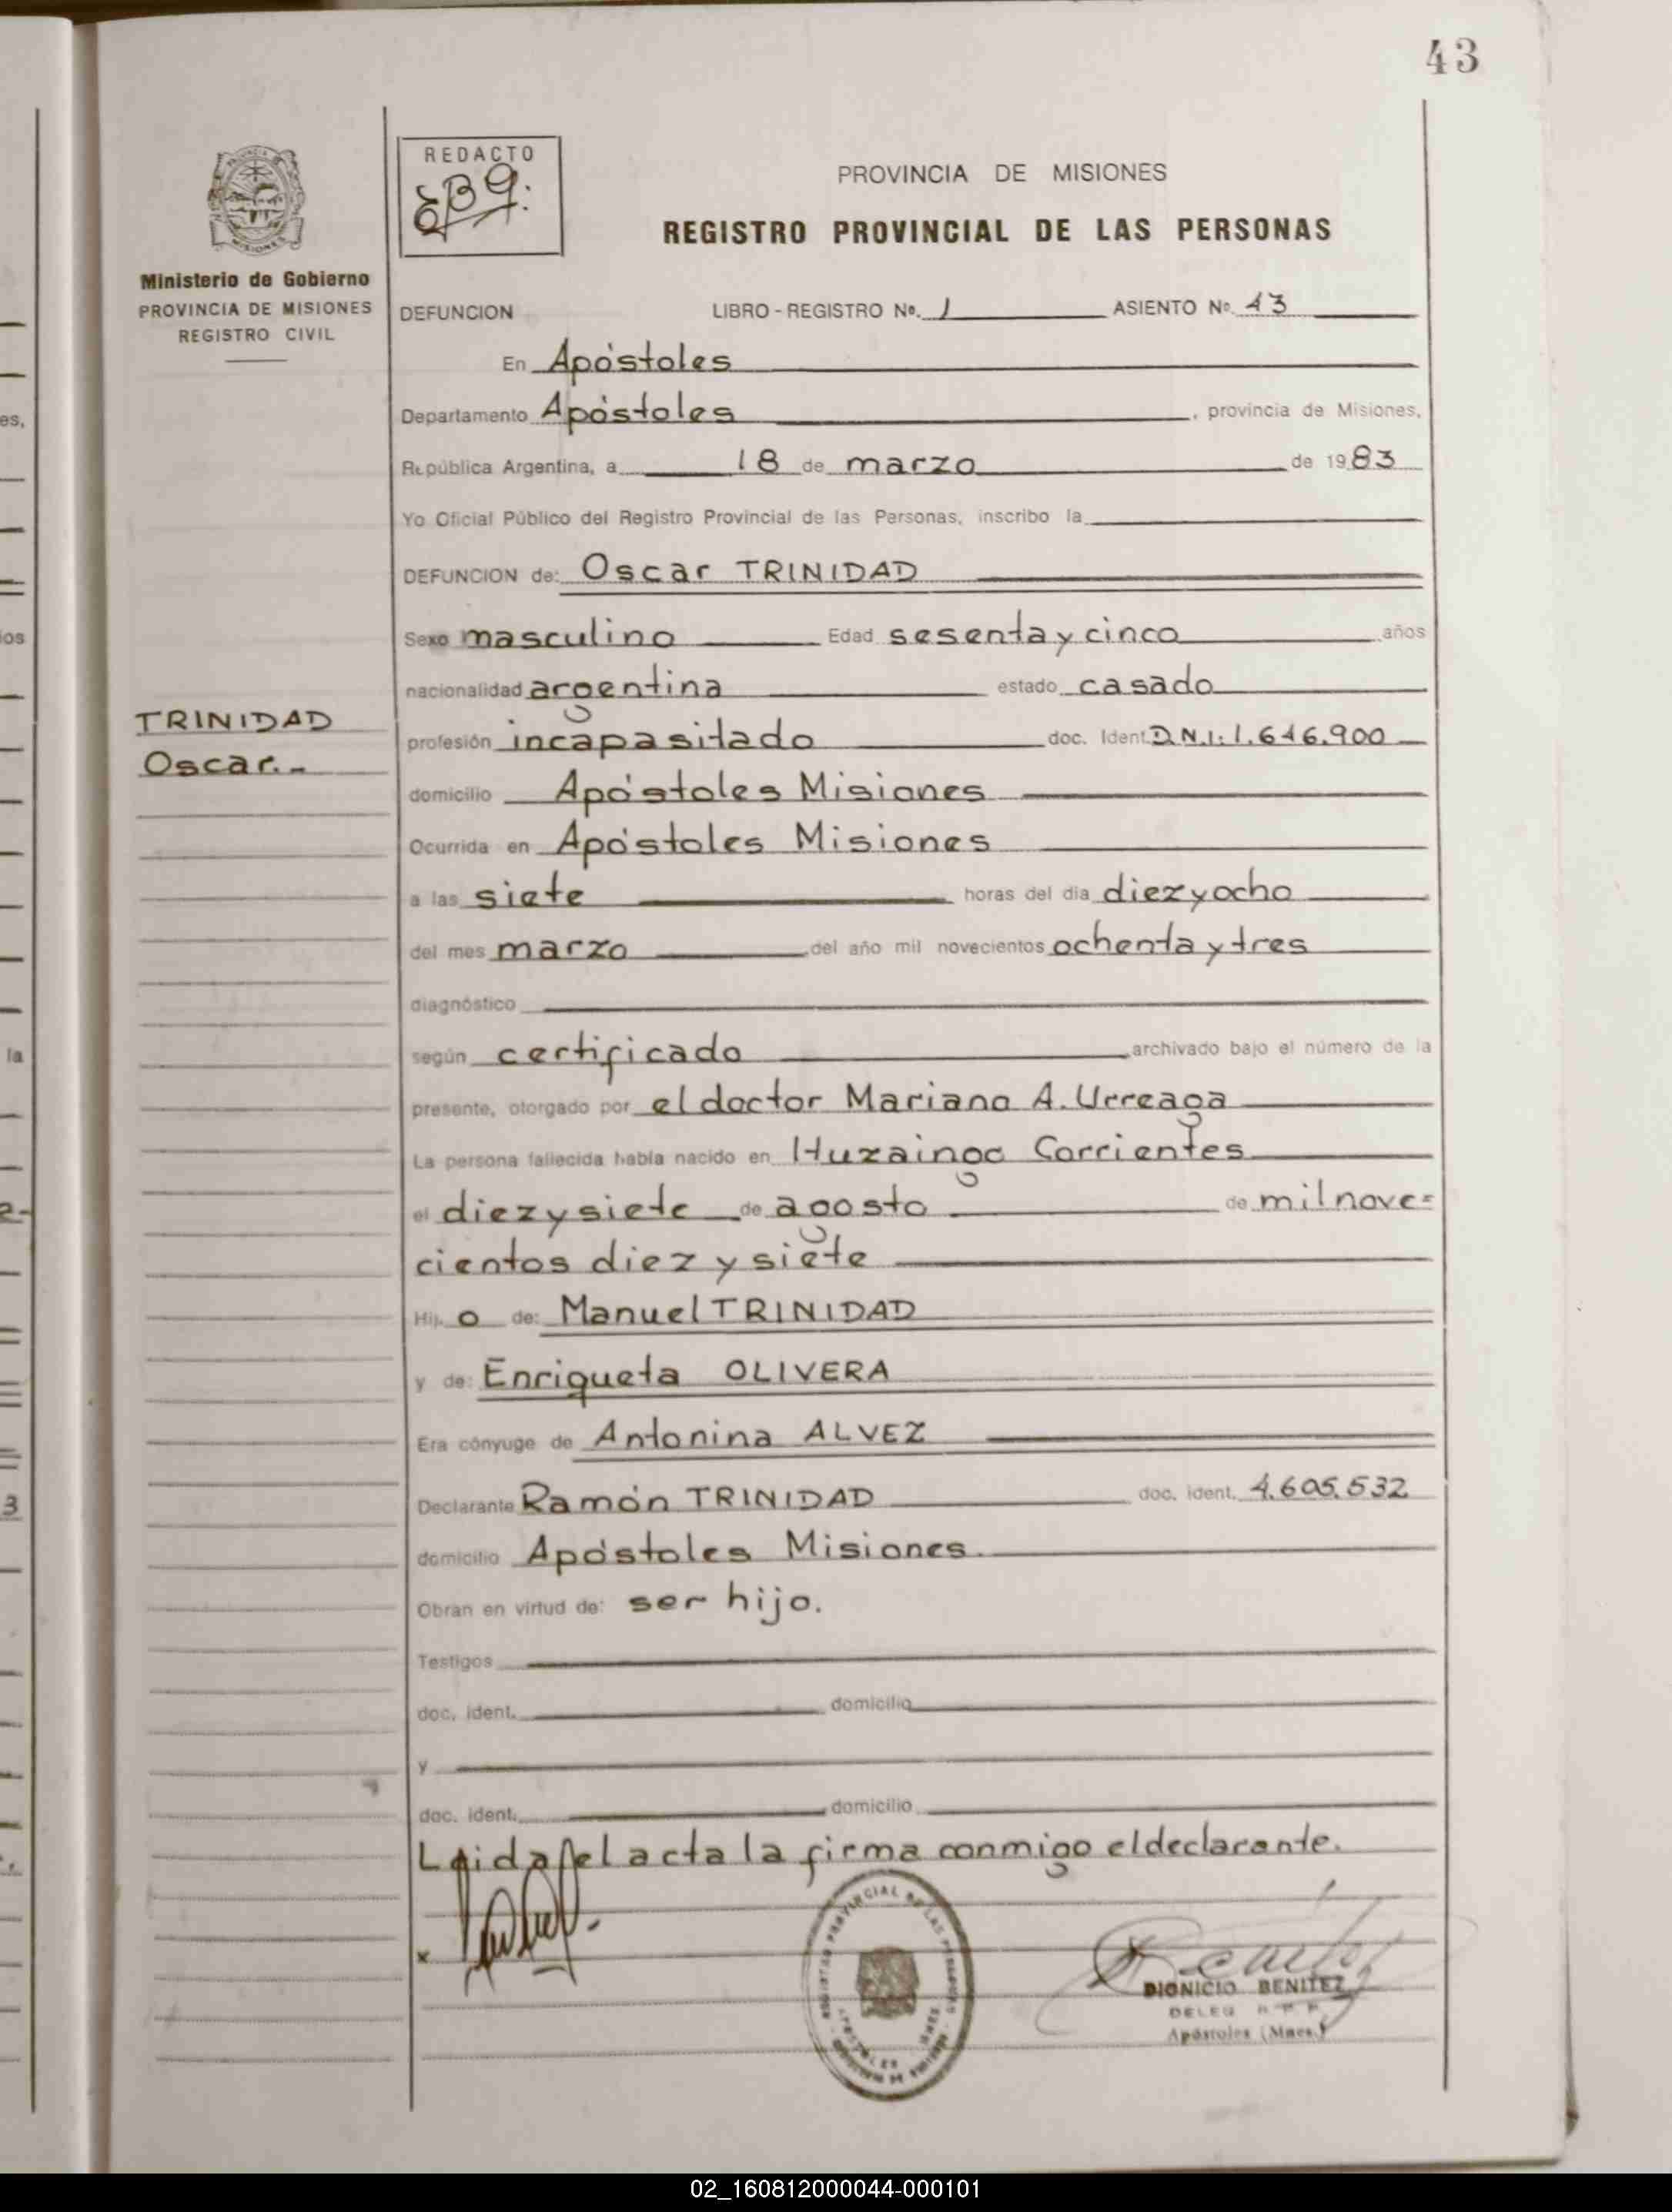 43
REDACTO
PROVINCIA DE MISIONES
REGISTRO PROVINCIAL DE LAS PERSONAS
Ministerio de Gobierno
PROVINCIA DE MISIONES
REGISTRO CIVIL
DEFUNCION LIBRO - REGISTRO No. 1 ASIENTO No. 43
En Apóstoles
Departamento Apóstoles, provincia de Misiones,
República Argentina, a 18 de marzo de 1983
Yo Oficial Público del Registro Provincial de las Personas, inscribo la
DEFUNCION de: Oscar TRINIDAD
Sexo masculino Edad sesenta y cinco años
nacionalidad argentina estado casado
TRINIDAD
Oscar.-
profesión incapasitado doc. Ident. D.N.I: 1.646.900
domicilio Apóstoles Misiones
Ocurrida en Apóstoles Misiones
a las siete horas del dia diez y ocho
del mes marzo del año mil novecientos ochenta y tres
diagnóstico
según certificado archivado bajo el número de la
presente, otorgado por el doctor Mariano A. Urreaga
La persona fallecida había nacido en Corrientes
el diez y siete de agosto de mil nove=
cientos diez y siete
Hij o de: Manuel TRINIDAD
y de: Enriqueta OLIVERA
Era cónyuge de Antonina ALVEZ
Declarante Ramón TRINIDAD doc. ident. 4.605.532
domicilio Apóstoles Misiones.
Obran en virtud de: ser hijo.
Testigos
doc. ident. domicilio
y
doc. ident. domicilio
Leida el acta la firma conmigo el declarante.
x
REGISTRO PROVINCIAL DE LAS PERSONAS
APOSTOLES
DIONICIO BENITEZ
DELEG R P P
Apóstoles (Mnes.)
02_160812000044-000101